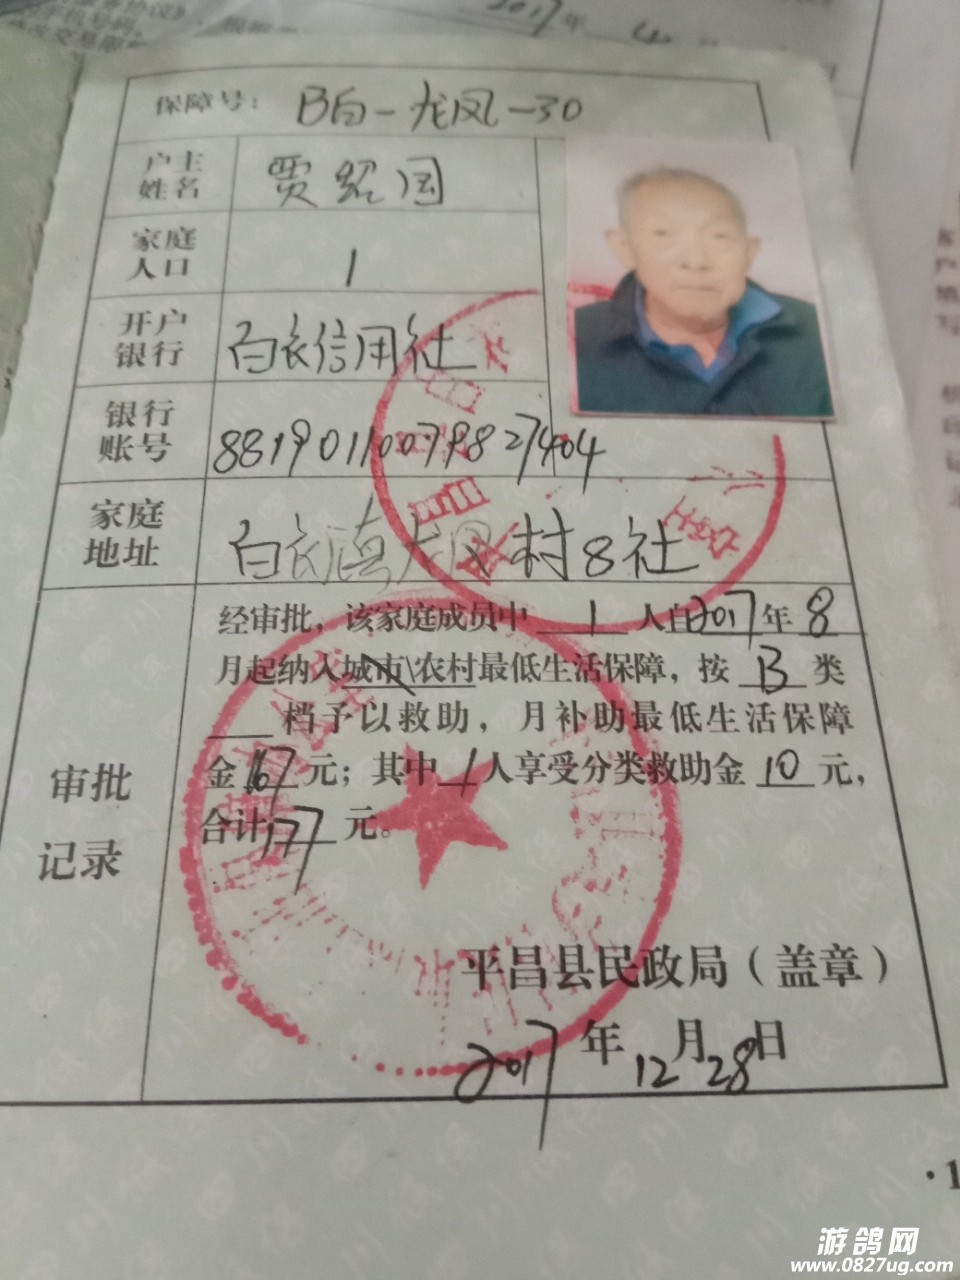 2017年
保障号：B白-龙凤-30
户主姓名 贾绍国
家庭人口 1
开户银行 白衣信用社
银行账号 88190110079827404
家庭地址 白衣镇 村8社
经审批，该家庭成员中 1 人自2017年 8
月起纳入城市\农村最低生活保障，按 B 类
档予以救助，月补助最低生活保障
金167元；其中 1 人享受分类救助金 10 元，
合计177 元。
审批
记录
平昌县民政局（盖章）
2017年12月28日
·1
游鸽网
www.0827ug.com